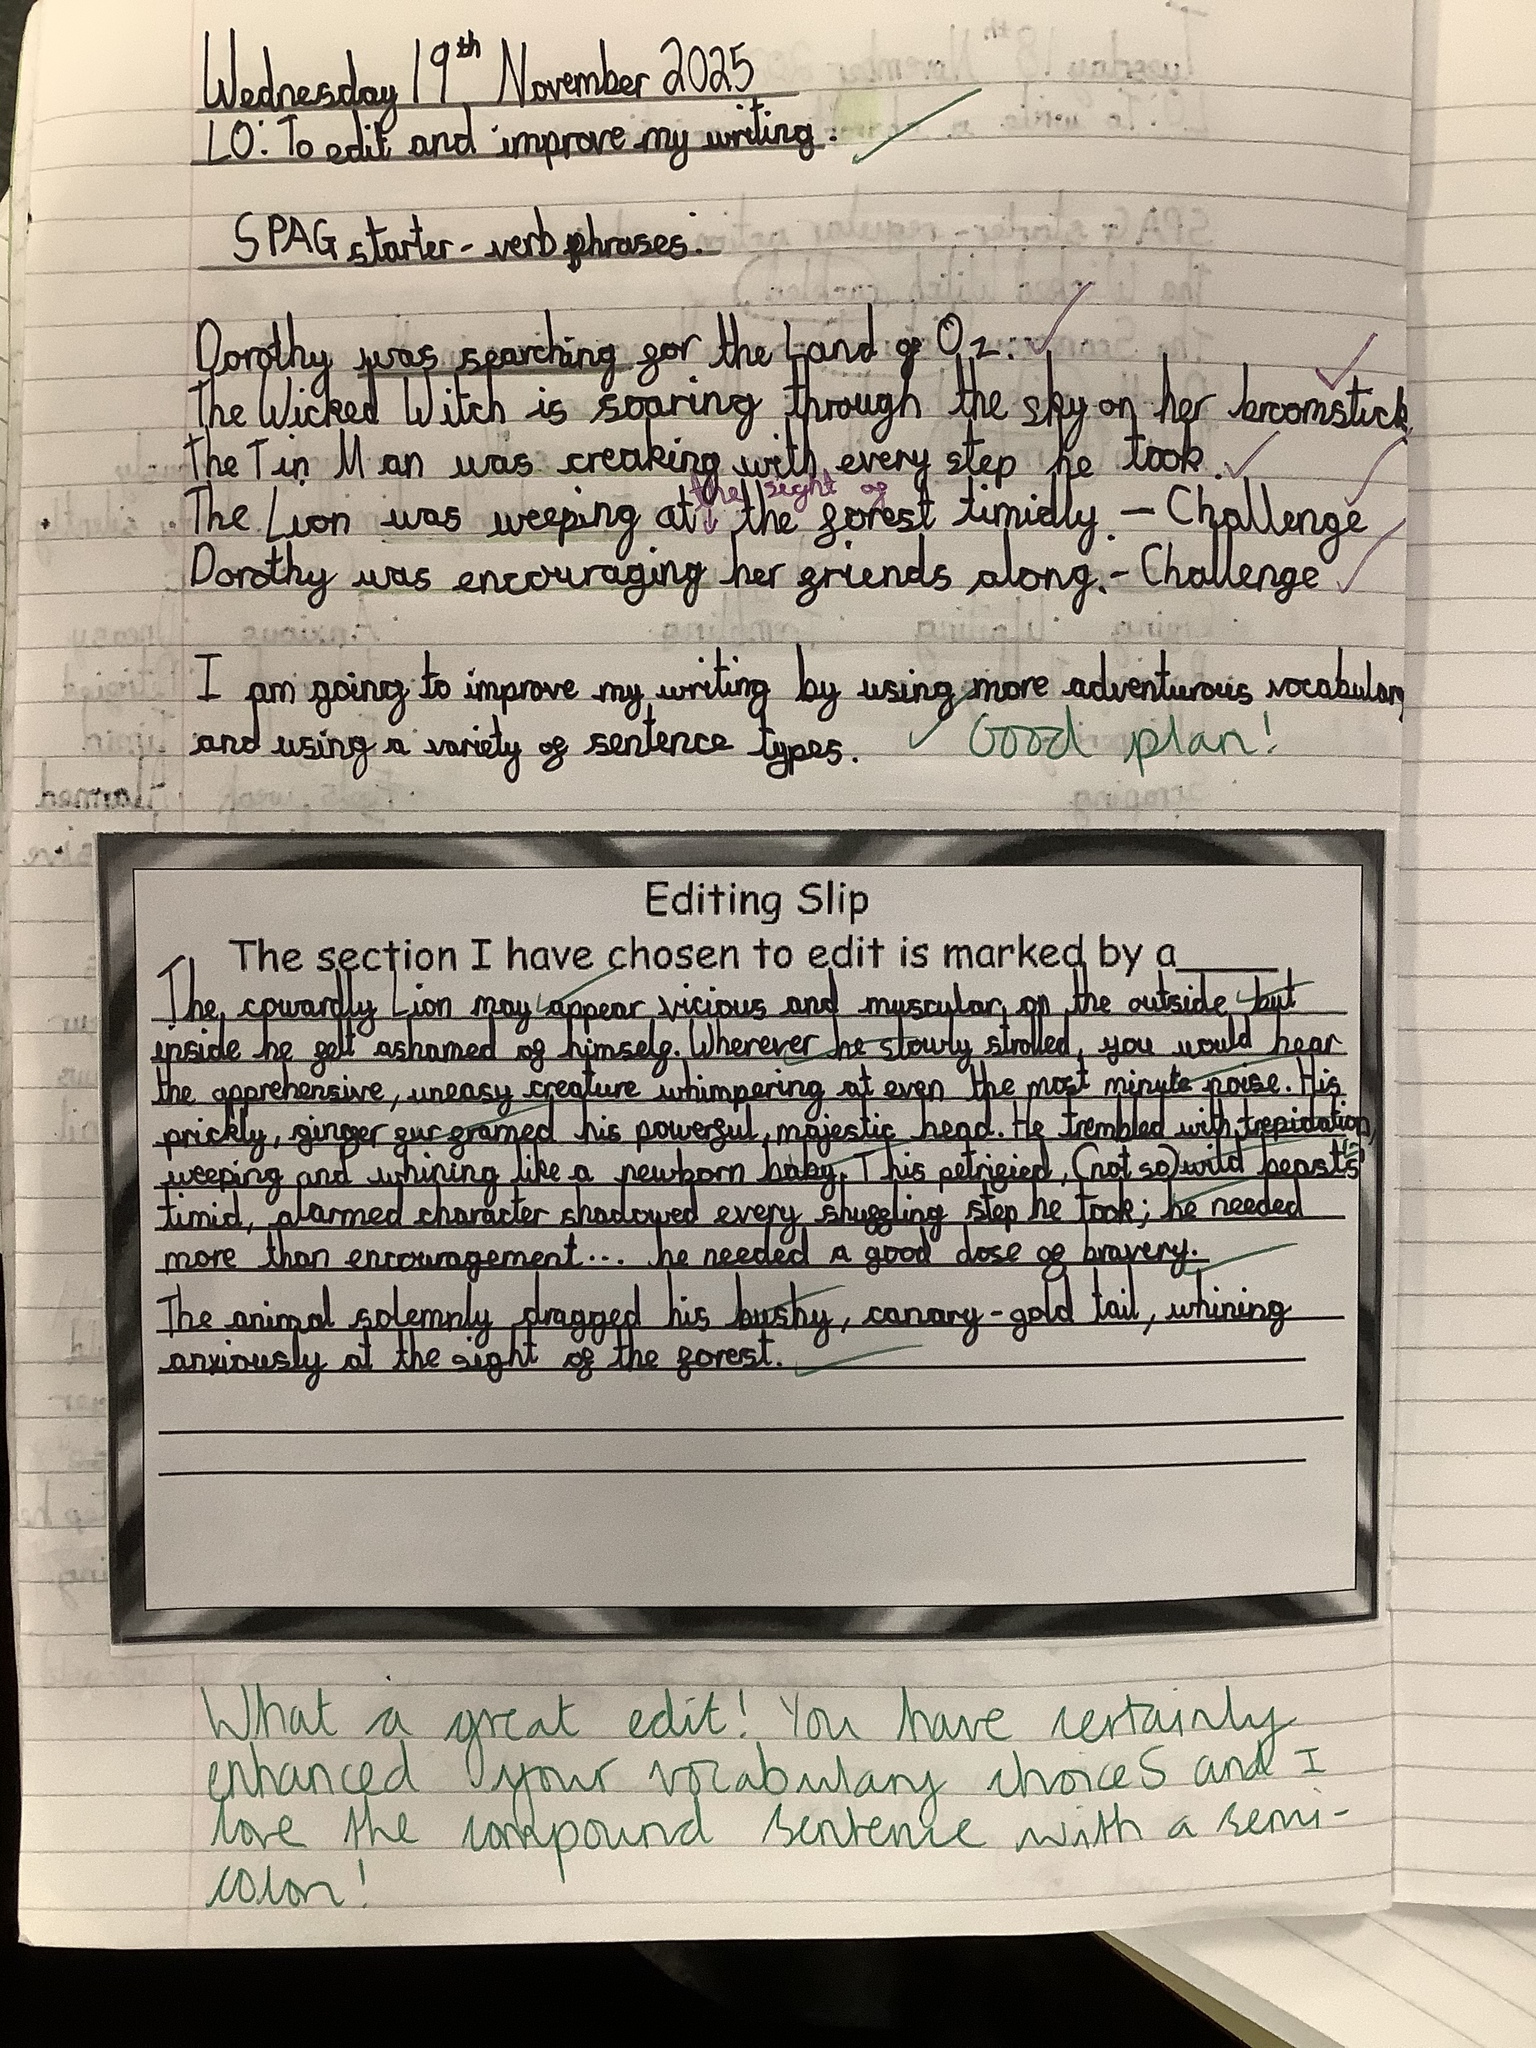 Wednesday 19th November 2025
LO: To edit and improve my writing.
SPAG starter - verb phrases.
Dorothy was searching for the Land of Oz.
The Wicked Witch is soaring through the sky on her broomstick.
The Tin Man was creaking with every step he took.
the sight of
The Lion was weeping at the forest timidly. - Challenge
Dorothy was encouraging her friends along. - Challenge
I am going to improve my writing by using more adventurous vocabulary
and using a variety of sentence types.
Good plan!
Editing Slip
The section I have chosen to edit is marked by a_____
The cowardly Lion may appear vicious and muscular on the outside but
inside he felt ashamed of himself. Wherever he slowly strolled, you would hear
the apprehensive, uneasy creature whimpering at even the most minute noise. His
prickly, ginger fur framed his powerful, majestic head. He trembled with trepidation,
weeping and whining like a newborn baby. This petrified, (not so) wild beast's
timid, alarmed character shadowed every shuffling step he took; he needed
more than encouragement... he needed a good dose of bravery.
The animal solemnly dragged his bushy, canary-gold tail, whining
anxiously at the sight of the forest.
What a great edit! You have certainly
enhanced your vocabulary choices and I
love the compound sentence with a semi-
colon!